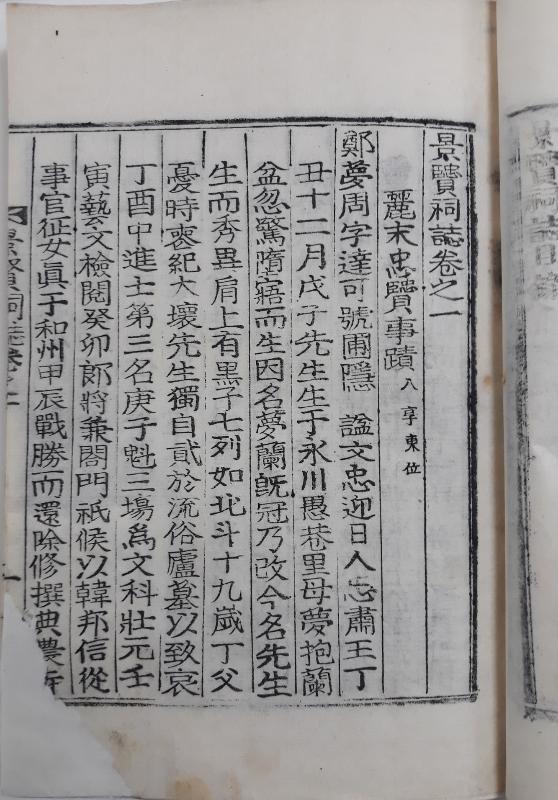 景賢祠誌卷之一
麗末忠賢事蹟 入享東位
鄭夢周字達可號圃隱 諡文忠迎日人忠肅王丁
丑十二月戊子先生生于永川愚巷里母夢抱蘭
盆忽驚墮寤而生因名夢蘭旣冠乃改今名先生
生而秀異肩上有黑子七列如北斗十九歲丁父
憂時喪紀大壞先生獨自貳於流俗廬墓以致哀
丁酉中進士第三名庚子魁三場爲文科壯元壬
寅藝文檢閱癸卯郞將兼閤門祗候以韓邦信從
事官征女眞于和州甲辰戰勝而還除修撰典農寺
景賢祠誌卷之一
一